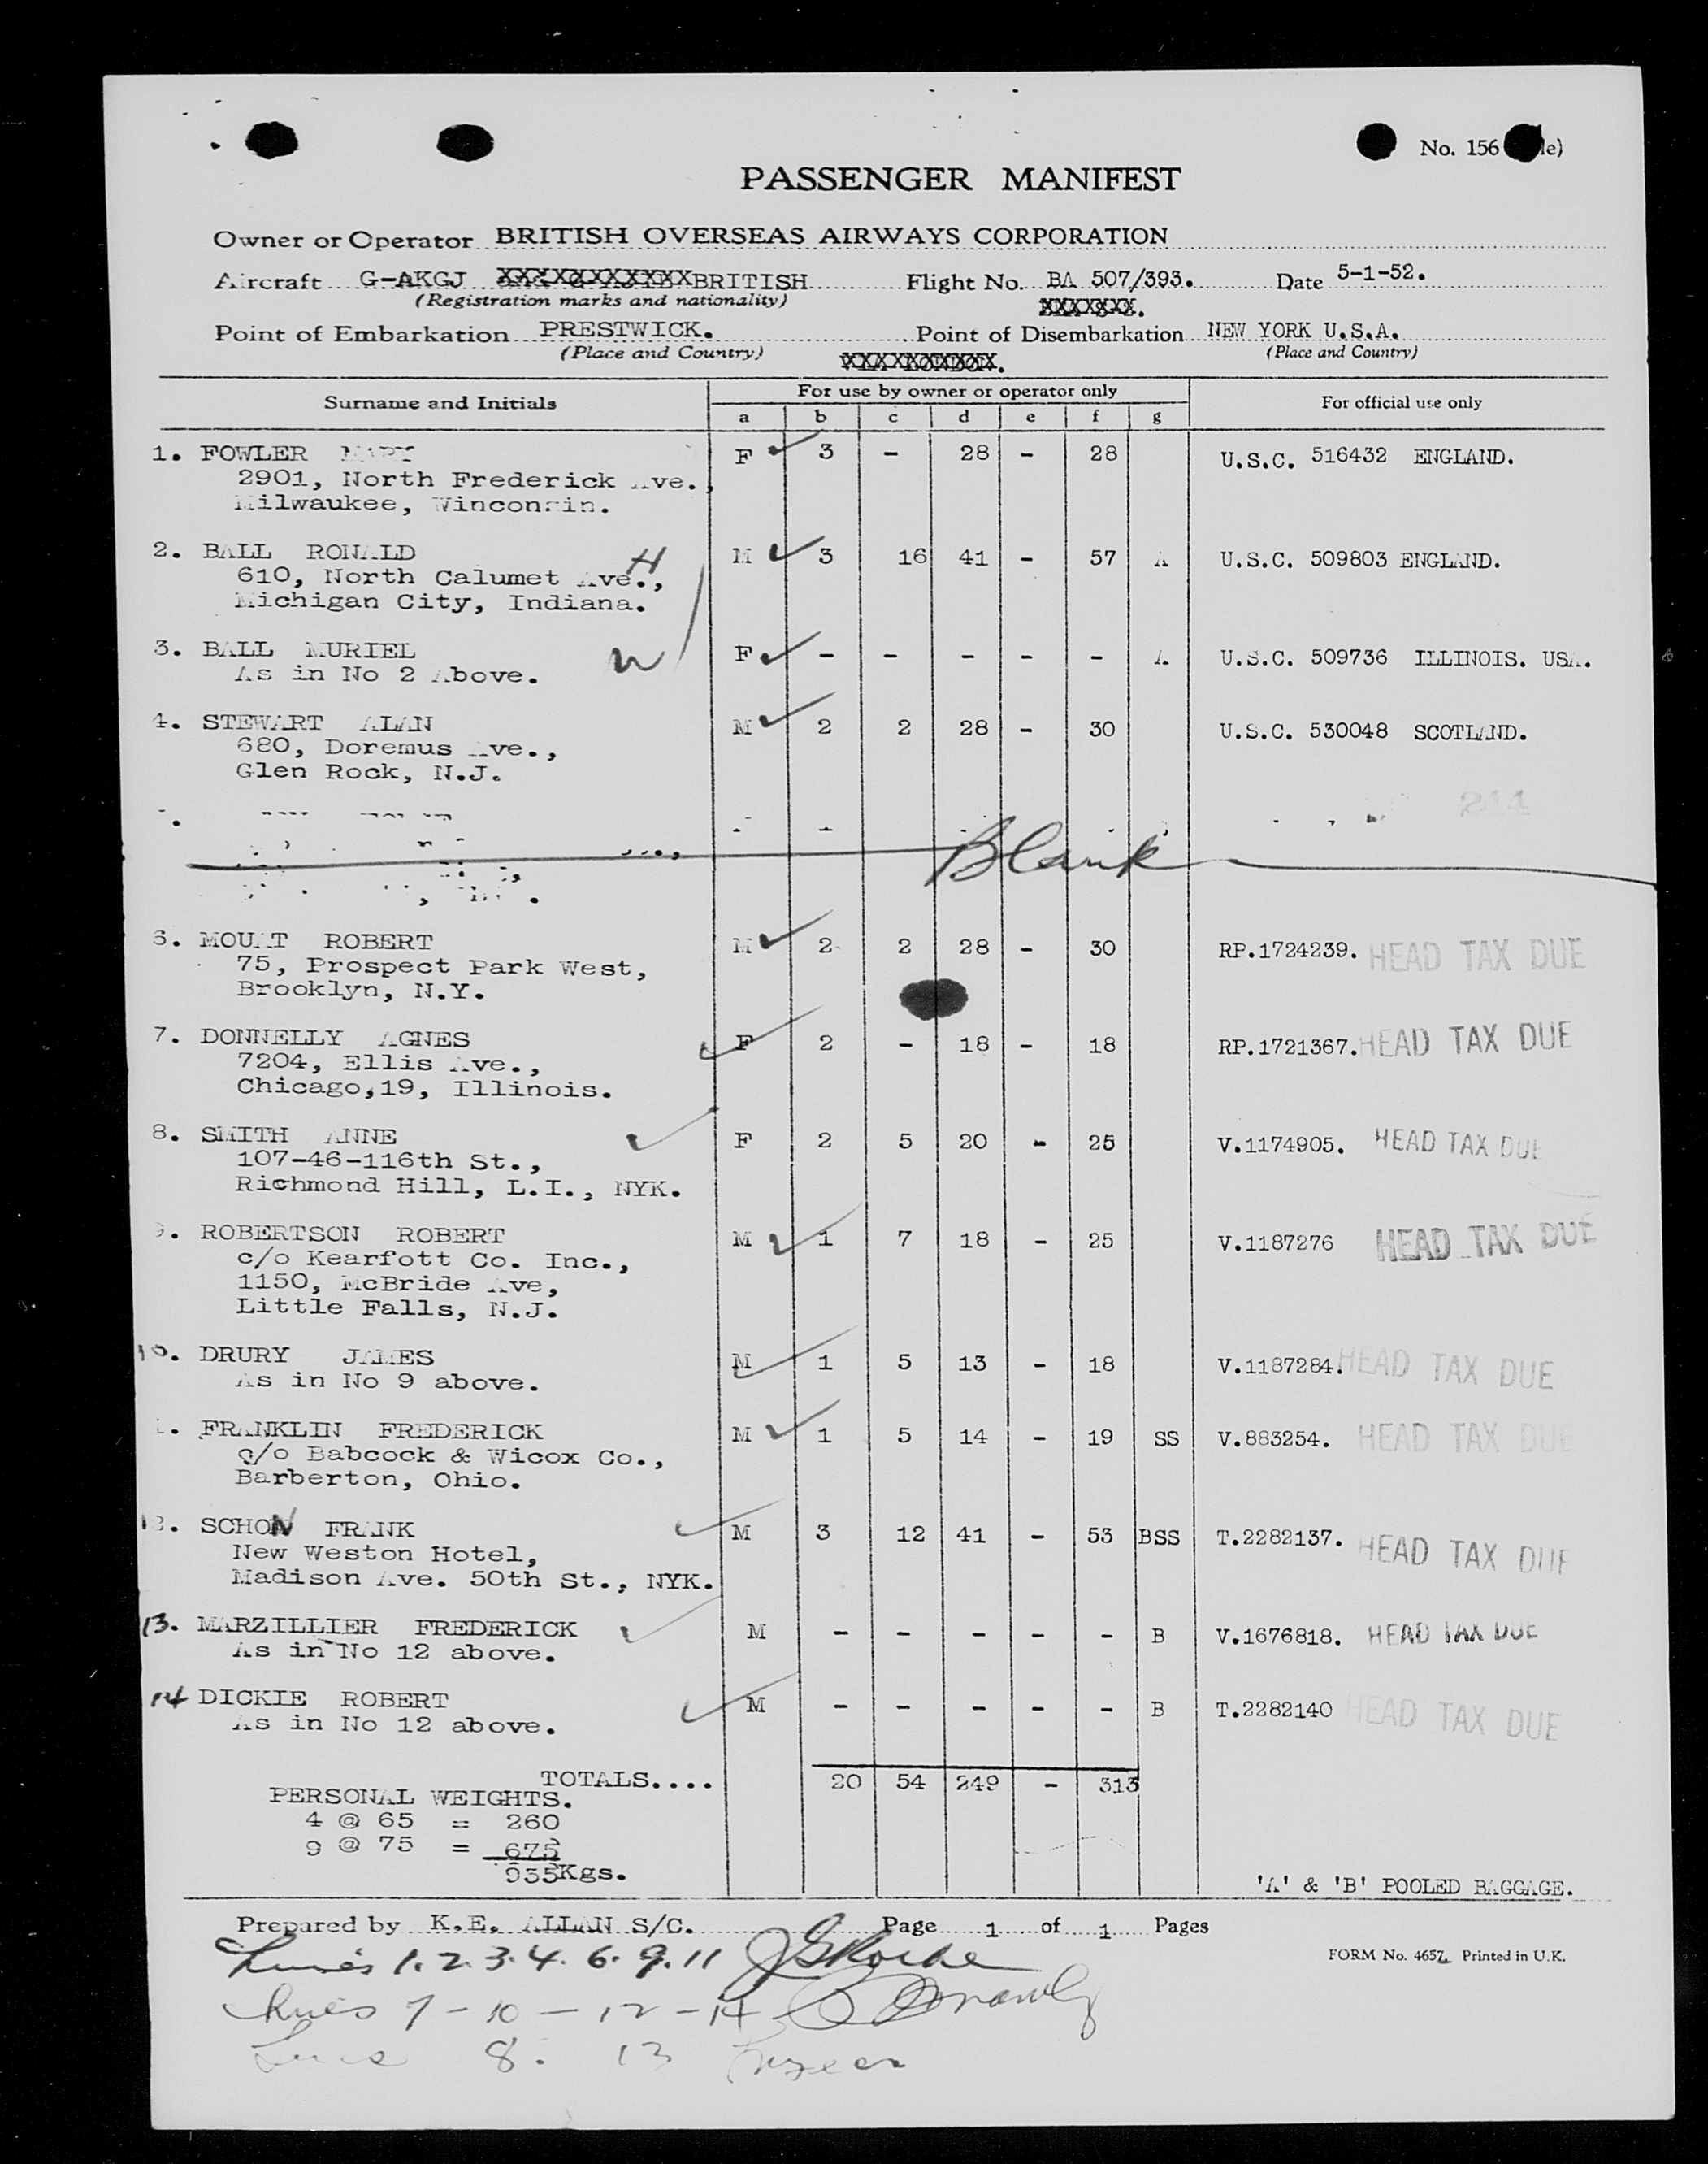 No. 156
PASSENGER MANIFEST
Owner or Operator BRITISH OVERSEAS AIRWAYS CORPORATION
Aircraft G-AKGJ BRITISH Flight No. BA 507/393. Date 5-1-52.
(Registration marks and nationality)
Point of Embarkation PRESTWICK. Point of Disembarkation NEW YORK U.S.A.
(Place and Country) (Place and Country)
Surname and Initials For use by owner or operator only For official use only
a b c d e f g
1. FOWLER MARY F 3 - 28 - 28 U.S.C. 516432 ENGLAND.
2901, North Frederick Ave.,
Milwaukee, Winconsin.
2. BALL RONALD H M 3 16 41 - 57 A U.S.C. 509803 ENGLAND.
610, North Calumet Ave.,
Michigan City, Indiana.
3. BALL MURIEL W F - - - - - A U.S.C. 509736 ILLINOIS. USA.
As in No 2 Above.
4. STEWART ALAN M 2 2 28 - 30 U.S.C. 530048 SCOTLAND.
680, Doremus Ave.,
Glen Rock, N.J.
Blank
6. MOUAT ROBERT M 2 2 28 - 30 RP.1724239. HEAD TAX DUE
75, Prospect Park West,
Brooklyn, N.Y.
7. DONNELLY AGNES F 2 - 18 - 18 RP.1721367. HEAD TAX DUE
7204, Ellis Ave.,
Chicago,19, Illinois.
8. SMITH ANNE F 2 5 20 - 25 V.1174905. HEAD TAX DUE
107-46-116th St.,
Richmond Hill, L.I., NYK.
9. ROBERTSON ROBERT M 1 7 18 - 25 V.1187276 HEAD TAX DUE
c/o Kearfott Co. Inc.,
1150, McBride Ave,
Little Falls, N.J.
10. DRURY JAMES M 1 5 13 - 18 V.1187284. HEAD TAX DUE
As in No 9 above.
FRANKLIN FREDERICK M 1 5 14 - 19 SS V.883254. HEAD TAX DUE
c/o Babcock & Wicox Co.,
Barberton, Ohio.
12. SCHON FRANK M 3 12 41 - 53 BSS T.2282137. HEAD TAX DUE
New Weston Hotel,
Madison Ave. 50th St., NYK.
13. MARZILLIER FREDERICK M - - - - - B V.1676818. HEAD TAX DUE
As in No 12 above.
14 DICKIE ROBERT M - - - - - B T.2282140 HEAD TAX DUE
As in No 12 above.
TOTALS.... 20 54 249 - 313
PERSONAL WEIGHTS.
4 @ 65 = 260
9 @ 75 = 675
935Kgs.
'A' & 'B' POOLED BAGGAGE.
Prepared by K.E. ALLAN S/C. Page 1 of 1 Pages
FORM No. 4657 Printed in U.K.
Lines 1. 2. 3. 4. 6. 9. 11
Lines 7 - 10 - 12 - 14
Lines 8. 13